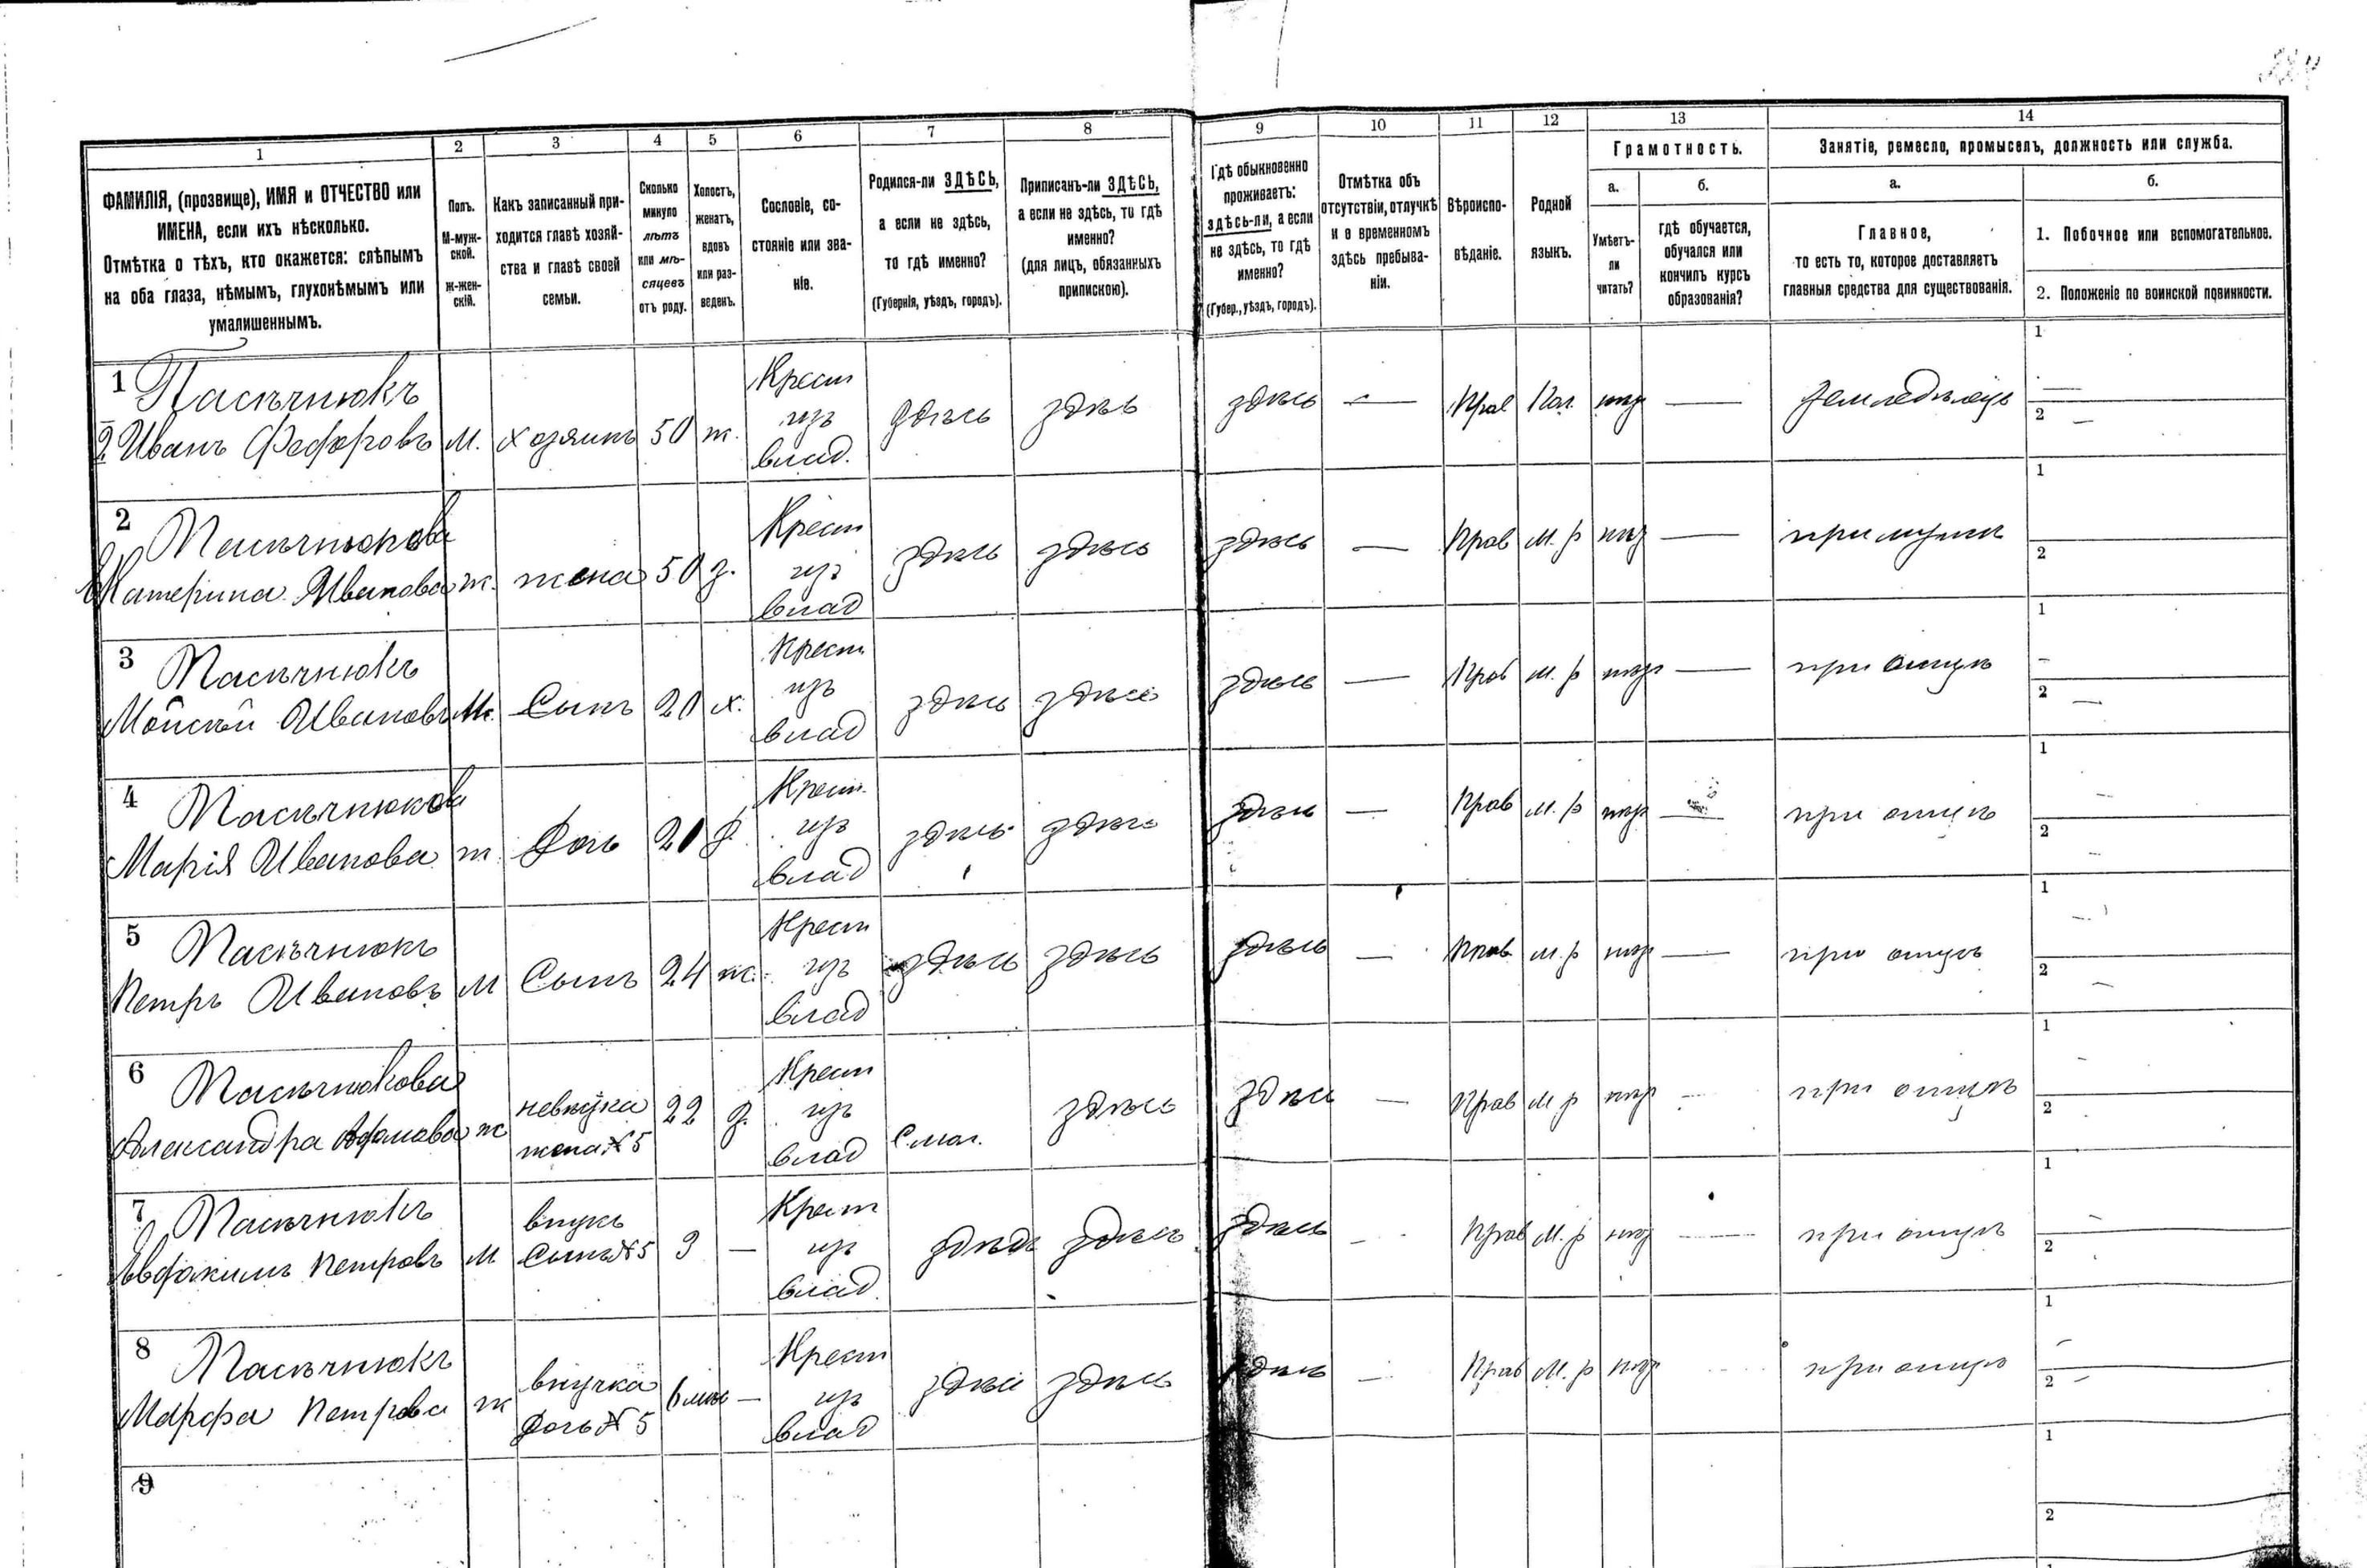 1 2 3 4 5 6 7 8 9 10 11 12 13 14
ФАМИЛІЯ, (прозвище), ИМЯ и ОТЧЕСТВО или
ИМЕНА, если ихъ нѣсколько.
Отмѣтка о тѣхъ, кто окажется: слѣпымъ
на оба глаза, нѣмымъ, глухонѣмымъ или
умалишеннымъ.
Полъ.
М-муж-
ской.
ж-жен-
скій.
Какъ записанный при-
ходится главѣ хозяй-
ства и главѣ своей
семьи.
Сколько
минуло
лѣтъ
или мѣ-
сяцевъ
отъ роду.
Холостъ,
женатъ,
вдовъ
или раз-
веденъ.
Сословіе, со-
стояніе или зва-
ніе.
Родился-ли ЗДѢСЬ,
а если не здѣсь,
то гдѣ именно?
(Губернія, уѣздъ, городъ).
Приписанъ-ли ЗДѢСЬ,
а если не здѣсь, то гдѣ
именно?
(для лицъ, обязанныхъ
припискою).
Гдѣ обыкновенно
проживаетъ:
здѣсь-ли, а если
не здѣсь, то гдѣ
именно?
(Губер., уѣздъ, городъ).
Отмѣтка объ
отсутствіи, отлучкѣ
и о временномъ
здѣсь пребыва-
ніи.
Вѣроиспо-
вѣданіе.
Родной
языкъ.
Грамотность.
а.
Умѣетъ-
ли
читать?
б.
гдѣ обучается,
обучался или
кончилъ курсъ
образованія?
Занятіе, ремесло, промыселъ, должность или служба.
а.
Главное,
то есть то, которое доставляетъ
главныя средства для существованія.
б.
1. Побочное или вспомогательное.
2. Положеніе по воинской повинности.
1 Пасѣчнюкъ
Иванъ Федоровъ М. хозяинъ 50 ж. Крест изъ влад. здѣсь здѣсь здѣсь — Прав нтъ — земледѣлецъ 1 — 2 —
2 Пасѣчнюкова
Катерина Иванова ж. жена 50 з. Крест изъ влад здѣсь здѣсь здѣсь — Прав м. р нтъ — при мужѣ 1 2
3 Пасѣчнюкъ
Мойсѣй Ивановъ М. Сынъ 20 х. Крест изъ влад здѣсь здѣсь здѣсь — Прав м. р нтъ — при отцѣ 1 — 2 —
4 Пасѣчнюкова
Марія Иванова ж. Дочь Крест. изъ влад здѣсь здѣсь здѣсь — Прав м. р нтъ — при отцѣ 1 — 2 —
5 Пасѣчнюкъ
Петръ Ивановъ М Сынъ 24 ж. Крест изъ влад здѣсь здѣсь здѣсь — Прав м. р нтъ — при отцѣ 1 — 2 —
6 Пасѣчнюкова
Александра ж невѣстка жена №5 22 з. Крест изъ влад здѣсь здѣсь — Прав м р нтъ — при отцѣ 1 — 2 —
7 Пасѣчнюкъ
Авдакимъ Петровъ М внукъ Сынъ №5 3 — Крест изъ влад здѣсь здѣсь здѣсь — Прав м. р нтъ — при отцѣ 1 — 2
8 Пасѣчнюкъ
Марфа Петрова ж внучка Дочь №5 — Крест изъ влад здѣсь здѣсь здѣсь — Прав м. р нтъ — при отцѣ 1 — 2 —
9 1 2